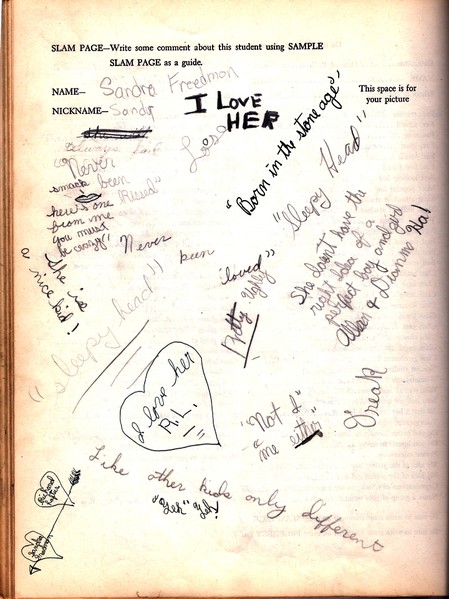 SLAM PAGE—Write some comment about this student using SAMPLE
SLAM PAGE as a guide.
NAME— Sandra Freedman
NICKNAME— Sandy
This space is for
your picture
I LOVE
HER
"Born in the stone age"
"Sleepy Head"
"Never
been
Kissed"
smack
here's one
from me
you must
be crazy"
Never been "loved"
She is
a nice kid!
"sleepy head"
Ughly
She doesn't have the
right idea of a
perfect boy and girl
Allan & Dianne Ha!
I love her
R.L.
"Not I"
"me either"
Freak
Like other kids only different
"Yeh" Yeh!
Richard
Sandra
Freedman